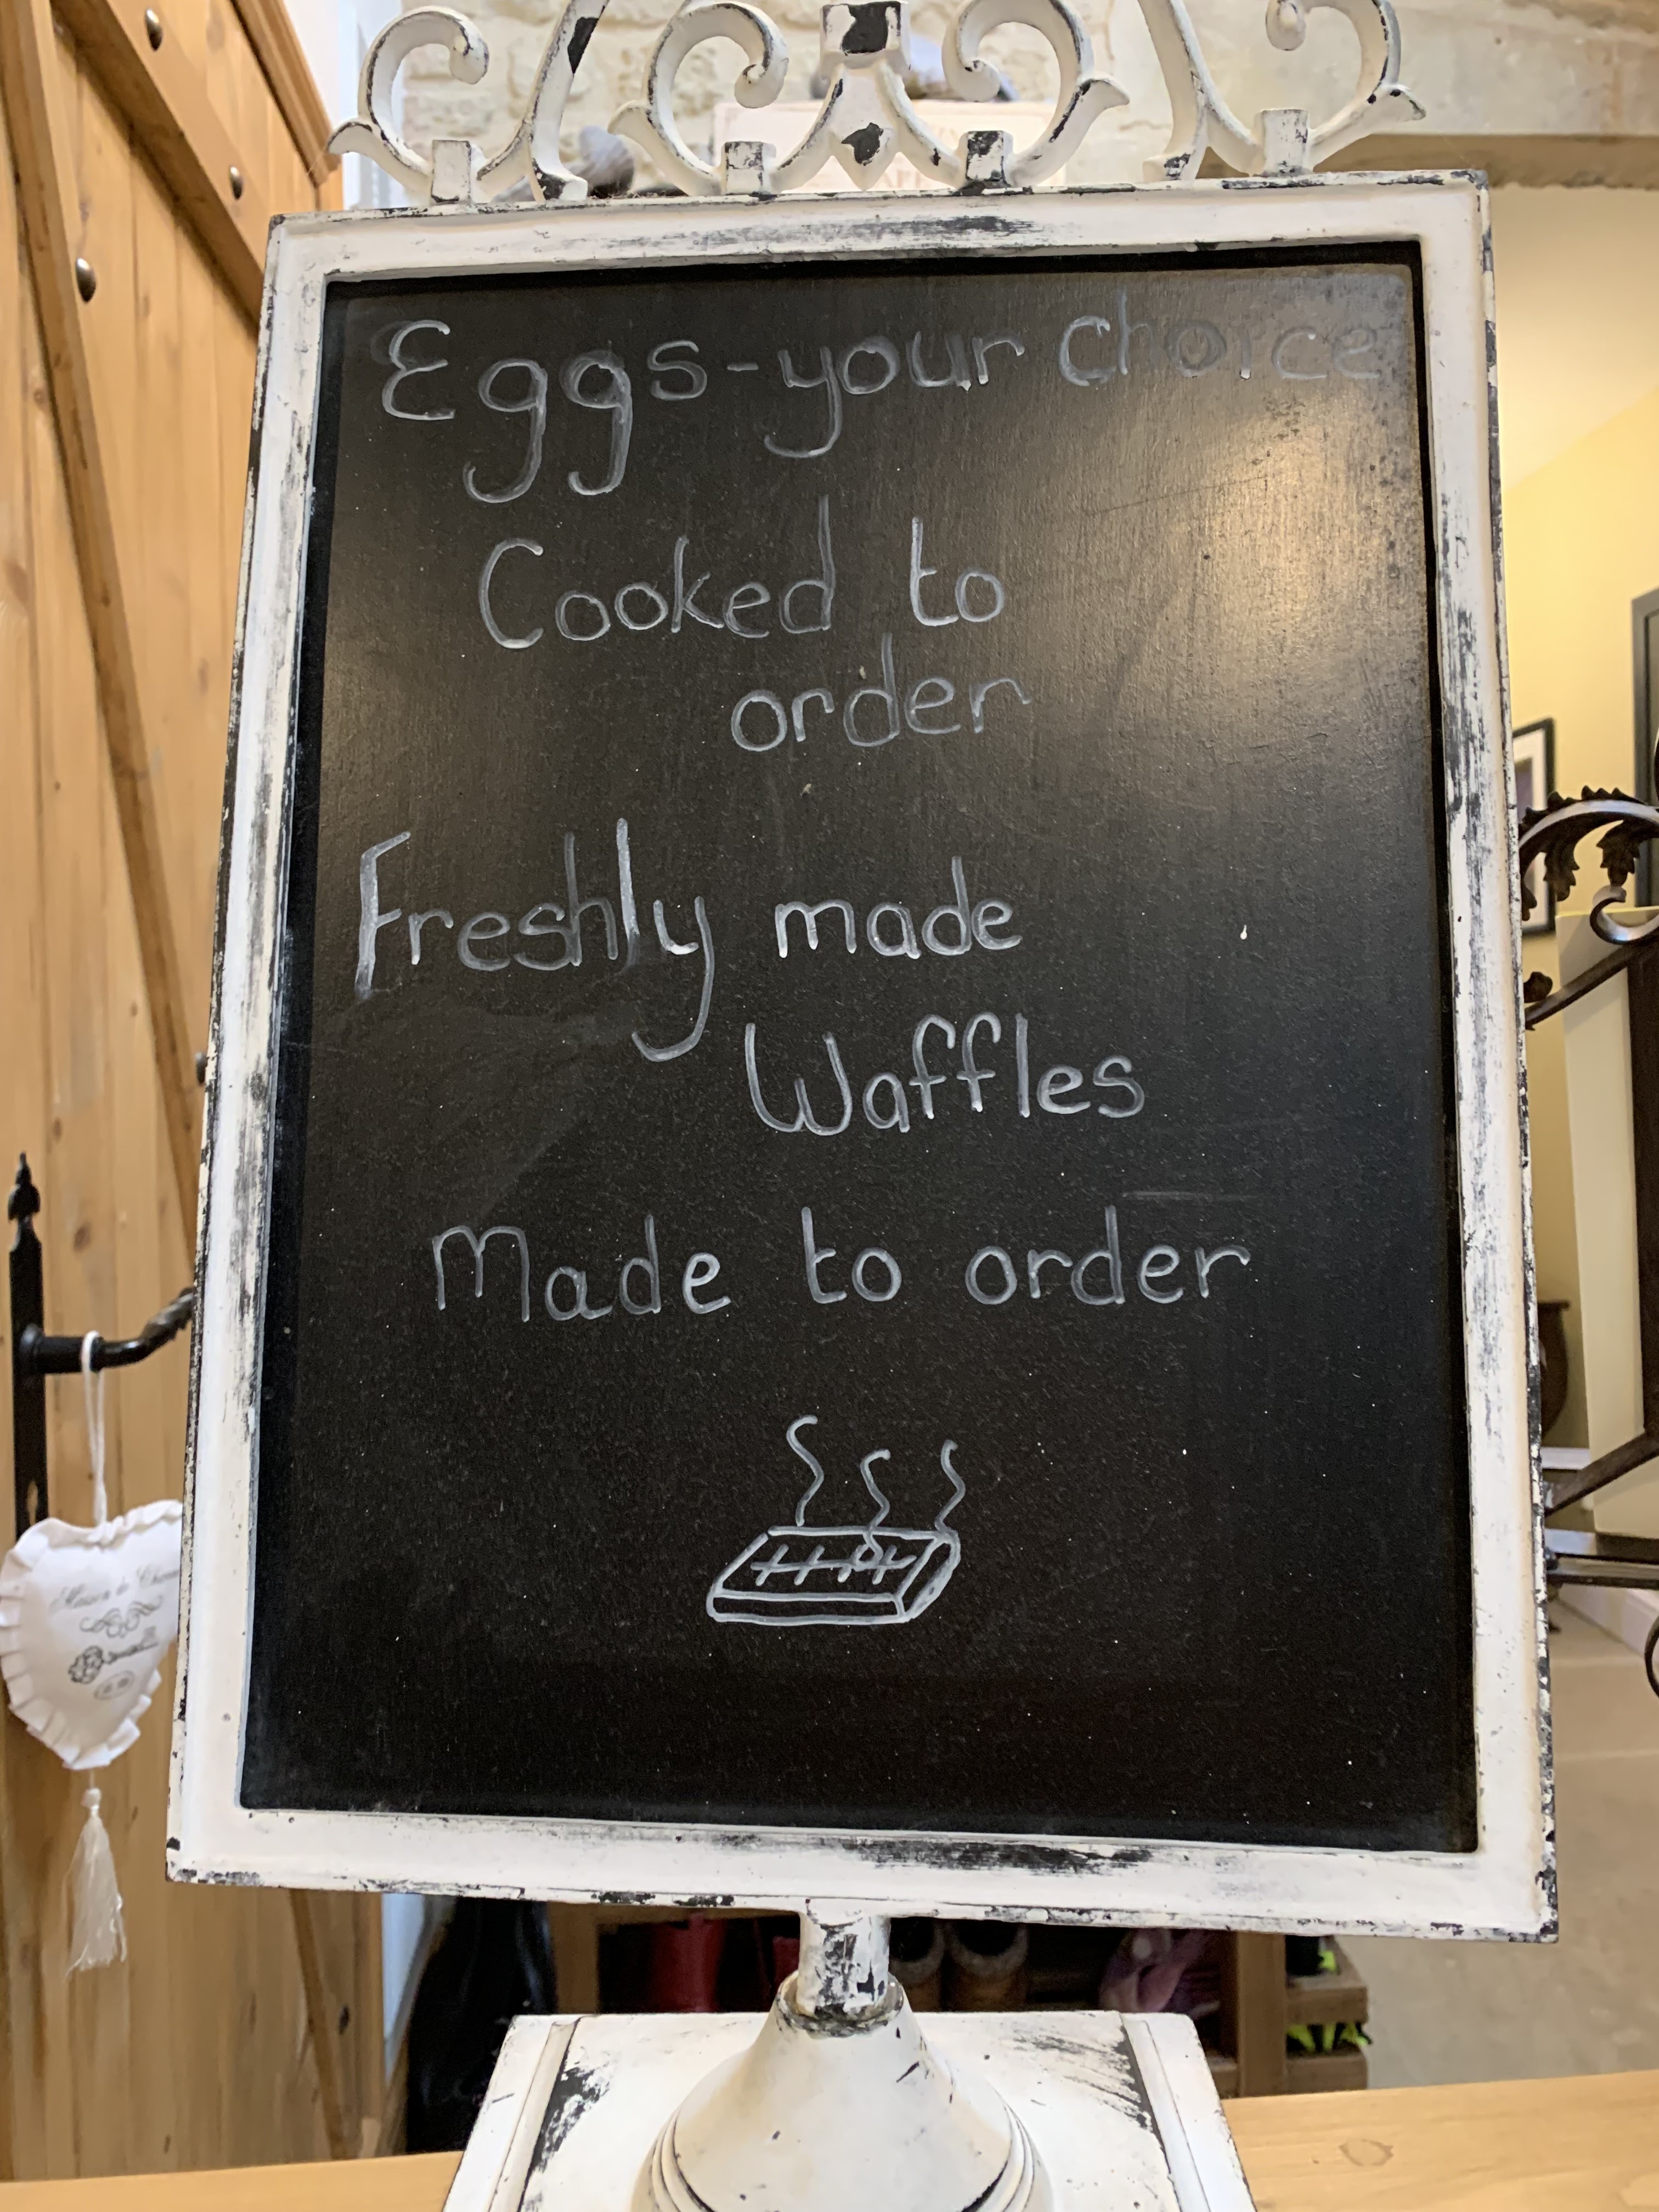 Eggs - your choice
Cooked to
order
Freshly made
Waffles
Made to order